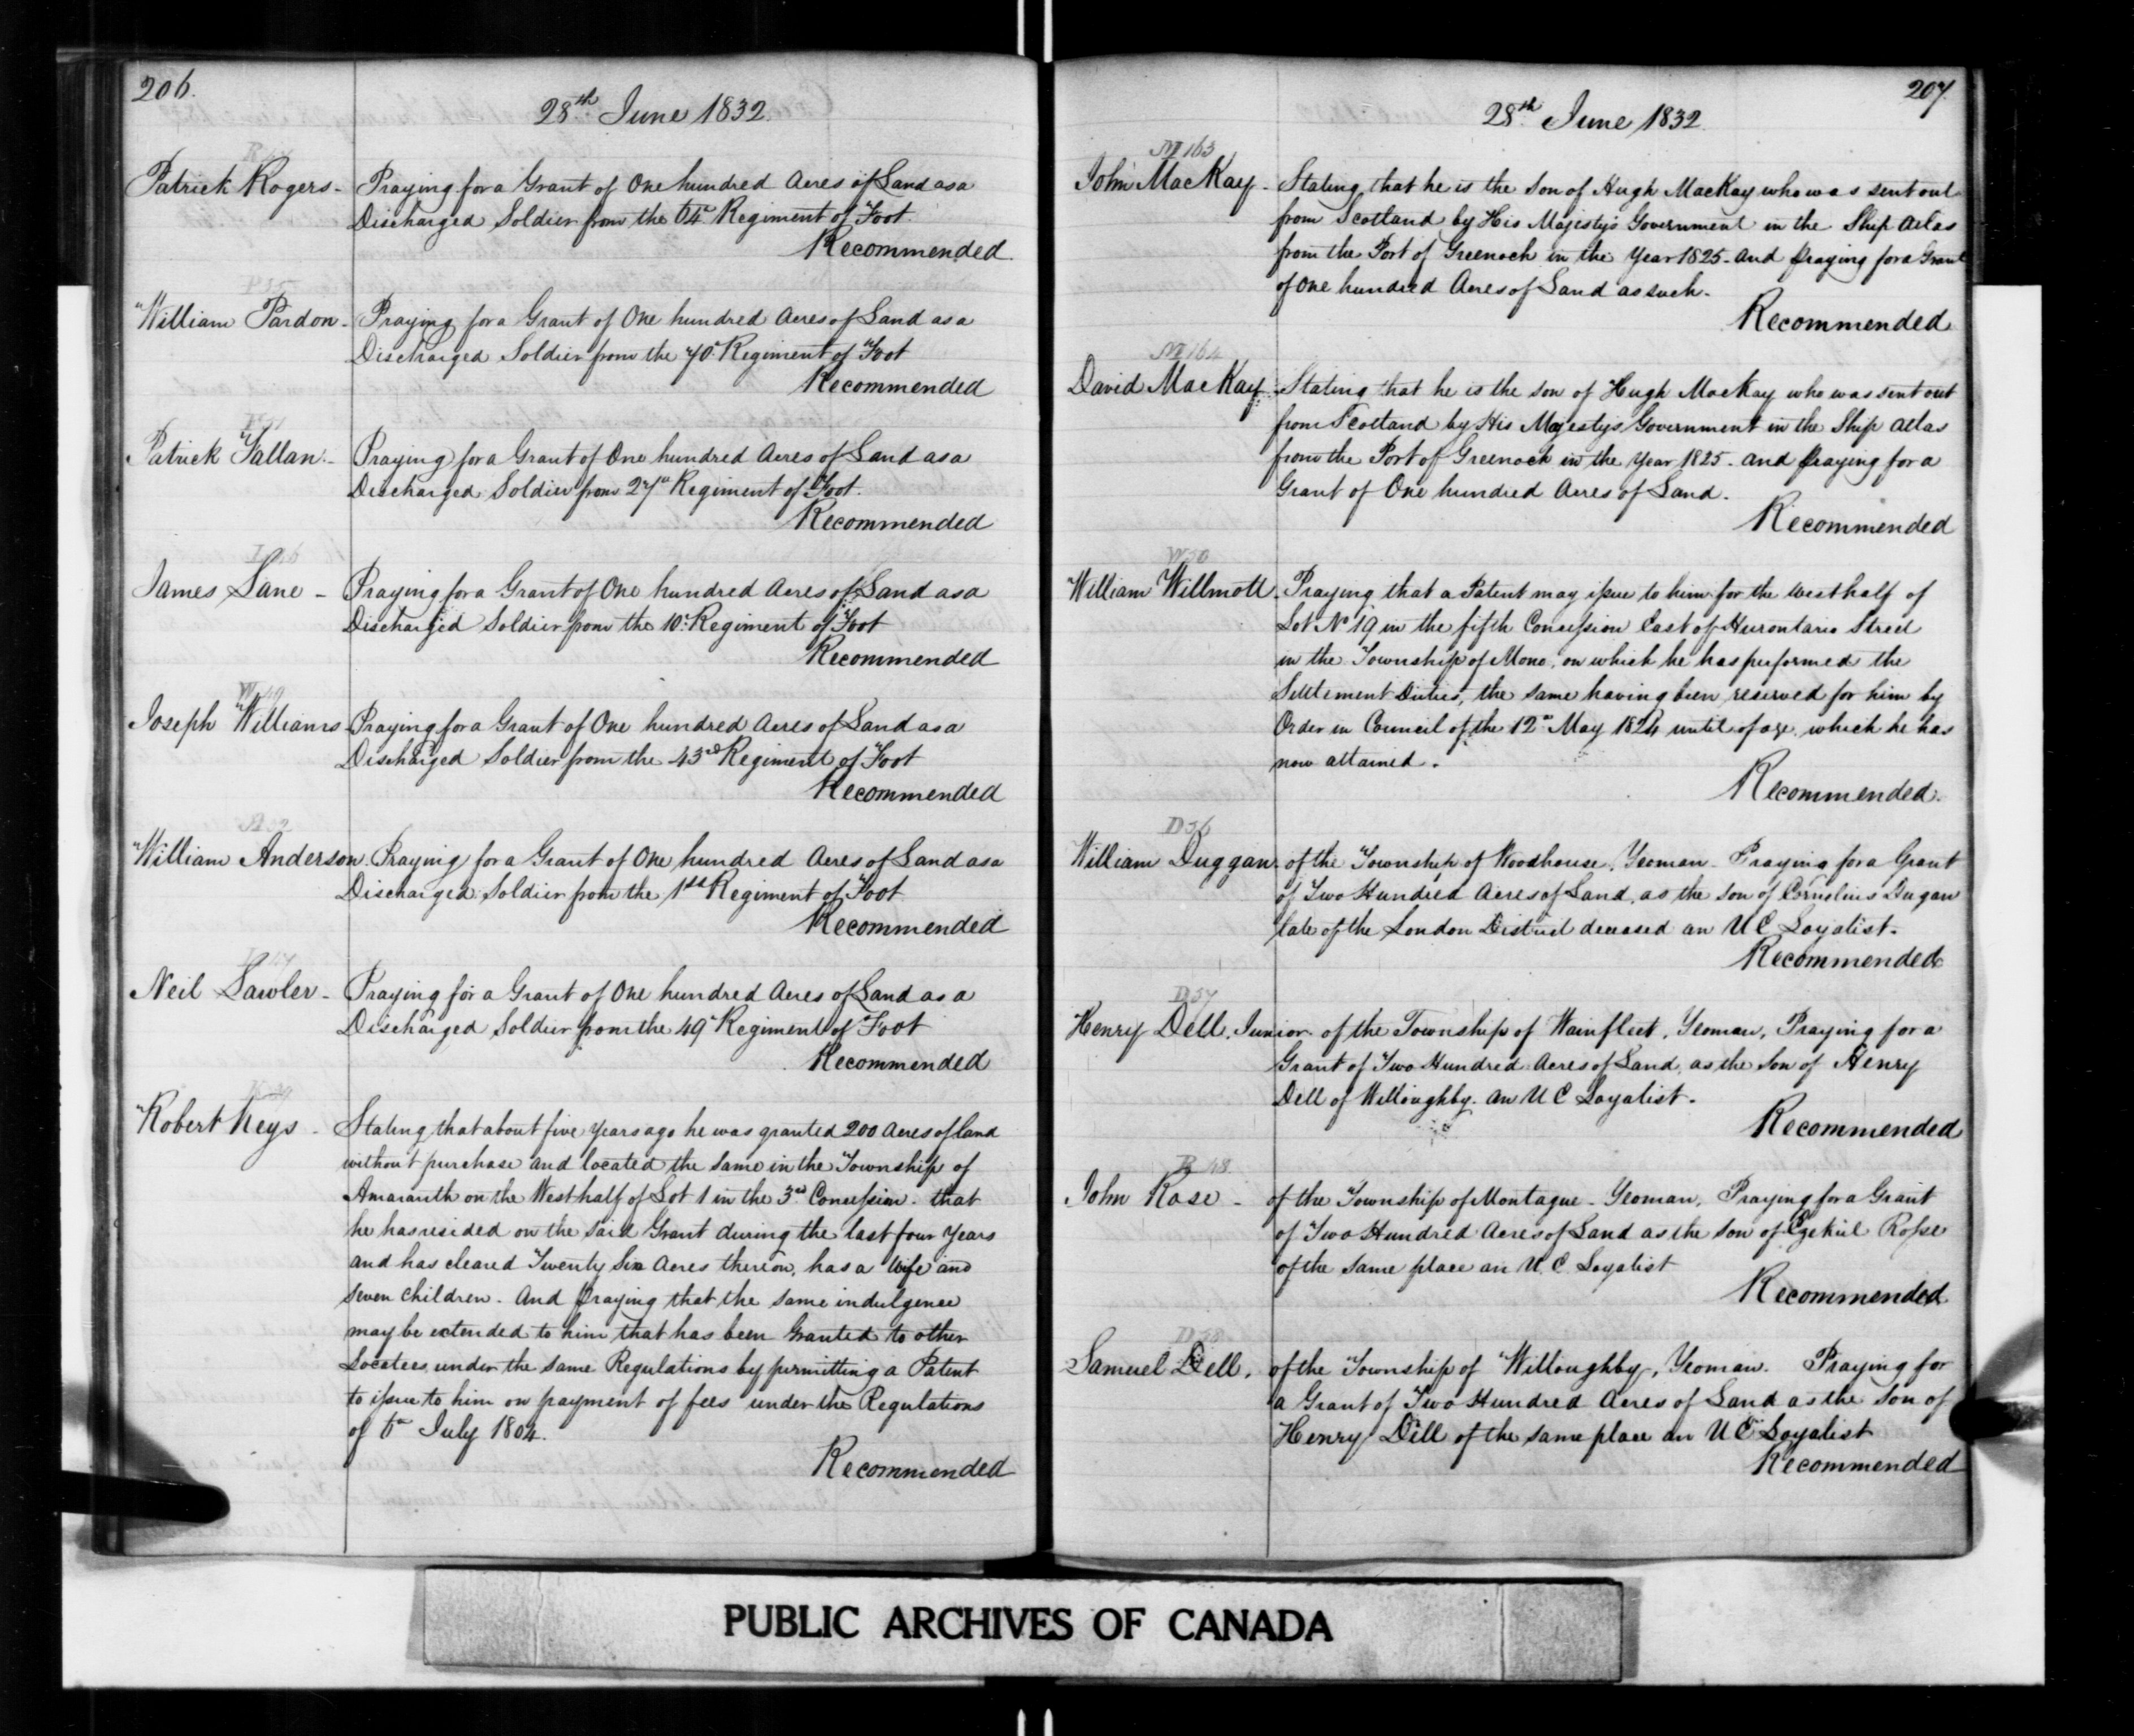 206.
28th June 1832.
Patrick Rogers - Praying for a Grant of One hundred Acres of Land as a
Discharged Soldier from the 64th Regiment of Foot
Recommended
William Pardon - Praying for a Grant of One hundred Acres of Land as a
Discharged Soldier from the 70th Regiment of Foot
Recommended
Patrick Fallan - Praying for a Grant of One hundred Acres of Land as a
Discharged Soldier from 27th Regiment of Foot.
Recommended
James Lane - Praying for a Grant of One hundred Acres of Land as a
Discharged Soldier from the 10th Regiment of Foot
Recommended
W 49
Joseph Williams Praying for a Grant of One hundred Acres of Land as a
Discharged Soldier from the 43rd Regiment of Foot
Recommended
William Anderson. Praying for a Grant of One hundred Acres of Land as a
Discharged Soldier from the 1st Regiment of Foot
Recommended
Neil Lawler - Praying for a Grant of One hundred Acres of Land as a
Discharged Soldier from the 49th Regiment of Foot
Recommended
Robert Keys - Stating that about five years ago he was granted 200 Acres of land
without purchase and located the same in the Township of
Amaranth on the West half of Lot 1 in the 3rd Concession. that
he has resided on the said Grant during the last four Years
and has cleared Twenty Six Acres thereon, has a Wife and
Seven Children. And praying that the same indulgence
may be extended to him that has been Granted to other
Locatees under the same Regulations by permitting a Patent
to issue to him on payment of fees under the Regulations
of 6th July 1804.
Recommended
207.
28th June 1832.
M 163
John MacKay - Stating that he is the Son of Hugh MacKay who was sent out
from Scotland by His Majesty's Government in the Ship Atlas
from the Port of Greenock in the Year 1825 - and praying for a Grant
of One hundred Acres of Land as such.
Recommended
M 164
David MacKay Stating that he is the son of Hugh MacKay who was sent out
from Scotland by His Majesty's Government in the Ship Atlas
from the Port of Greenock in the Year 1825 - and praying for a
Grant of One hundred Acres of Land.
Recommended
W 50
William Willmott. Praying that a Patent may issue to him for the West half of
Lot No 19 in the fifth Concession East of Hurontario Street
in the Township of Mono, on which he has performed the
Settlement Duties, the same having been reserved for him by
Order in Council of the 12th May 1824 until of age, which he has
now attained.
Recommended.
D 56
William Duggan of the Township of Woodhouse, Yeoman - Praying for a Grant
of Two Hundred Acres of Land, as the son of Cornelius Dugan
late of the London District deceased an U E Loyalist.
Recommended
D 57
Henry Dell, Junior. of the Township of Wainfleet, Yeoman, Praying for a
Grant of Two Hundred Acres of Land, as the Son of Henry
Dell of Willoughby. an U E Loyalist.
Recommended
R 48
John Rose - of the Township of Montague - Yeoman, Praying for a Grant
of Two Hundred Acres of Land as the son of Ezekiel Rose
of the same place an U. E. Loyalist
Recommended
D 58
Samuel Dell, of the Township of Willoughby, Yeoman. Praying for
a Grant of Two Hundred Acres of Land as the Son of
Henry Dell of the same place an U E Loyalist
Recommended
PUBLIC ARCHIVES OF CANADA